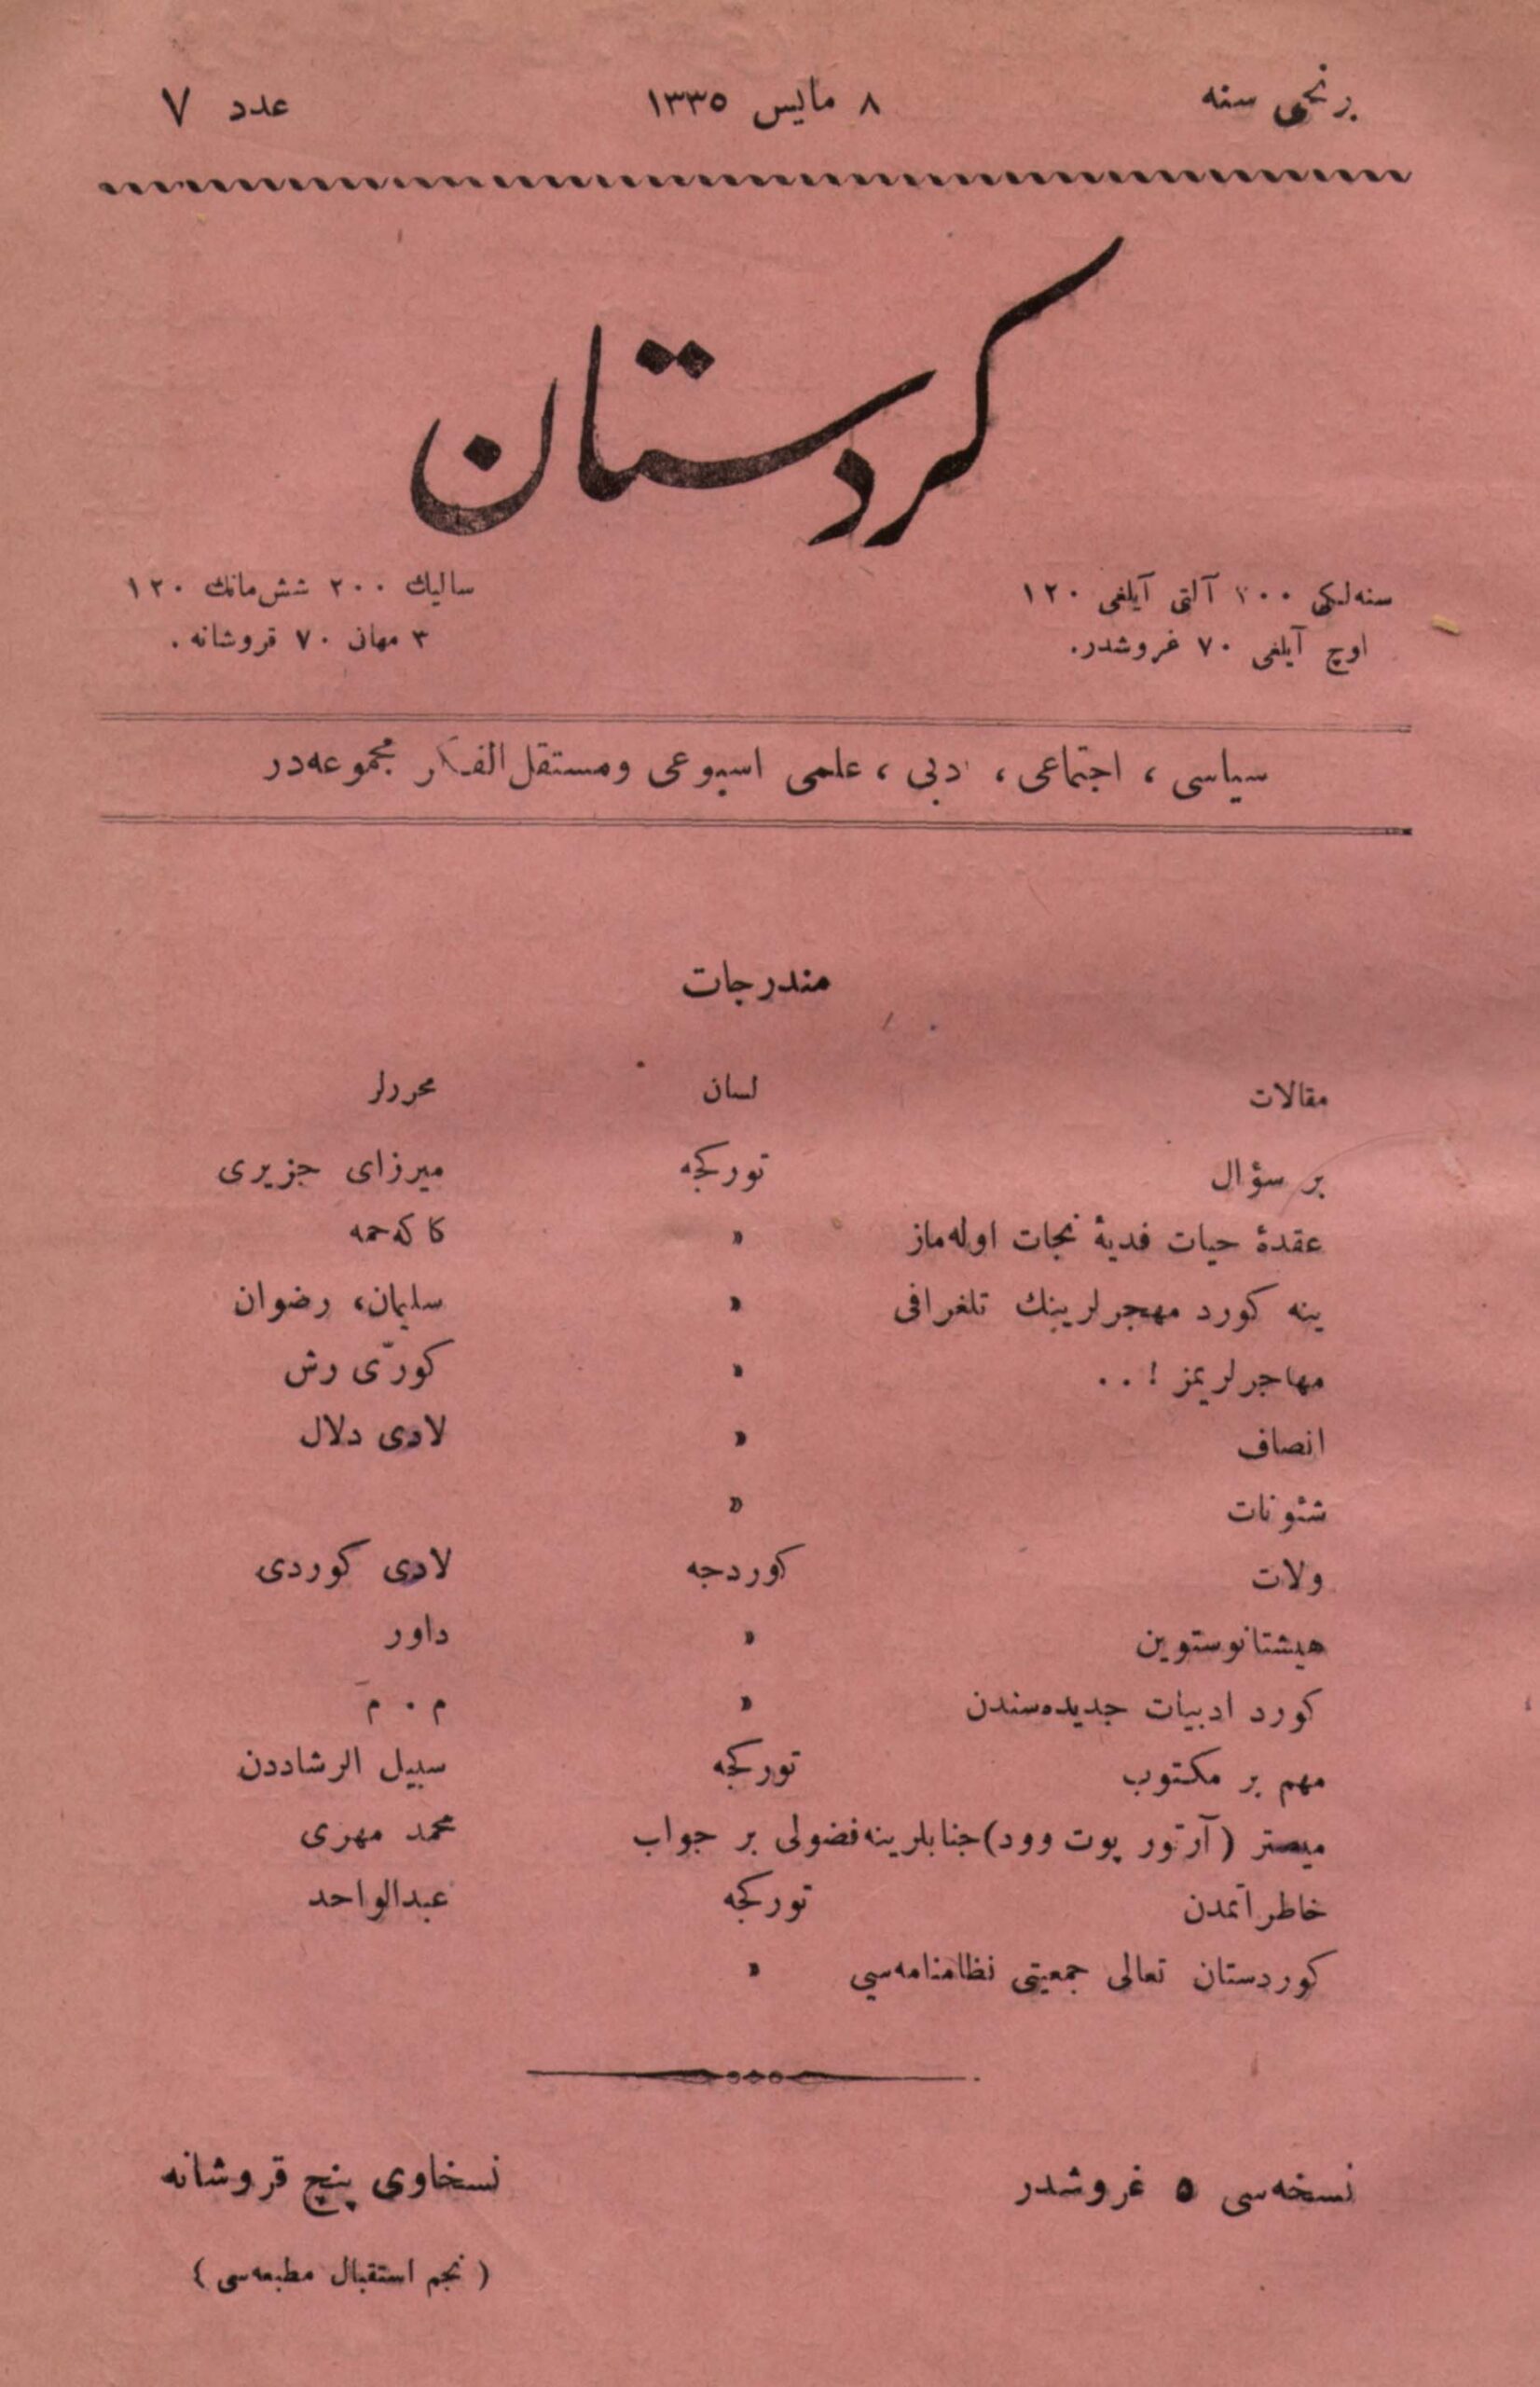 برنجی سنه ٨ مایس ١٣٣٥ عدد ٧
كردستان
سنه‌لكی ٢٠٠ آلتی آیلغی ١٢٠
اوچ آیلغی ٧٠ غروشدر.
سالیك ٢٠٠ شش‌مانك ١٢٠
٣ مهان ٧٠ قروشانه .
سیاسی ، اجتماعی ، ادبی ، علمی اسبوعی ومستقل‌الفكر مجموعه‌در
مندرجات
مقالات لسان محررلر
بر سؤال توركجه میرزای جزیری
عقدهٔ حیات فدیهٔ نجات اوله‌ماز » كاكه‌حمه
ینه كورد مهجرلرینك تلغرافی » سلیمان، رضوان
مهاجرلریمز !.. » كورّی رش
انصاف » لادی دلال
شئونات »
ولات كوردجه لادی كوردی
هیشتانوستوین » داور
كورد ادبیات جدیده‌سندن » م . م
مهم بر مكتوب توركجه سبیل الرشاددن
میستر (آرتور پوت وود)جنابلرینه‌فضولی بر جواب محمد مهری
خاطراتمدن توركجه عبدالواحد
كوردستان تعالی جمعیتی نظامنامه‌سی »
نسخه‌سی ٥ غروشدر
نسخاوی پنچ قروشانه
( نجم استقبال مطبعه‌سی )